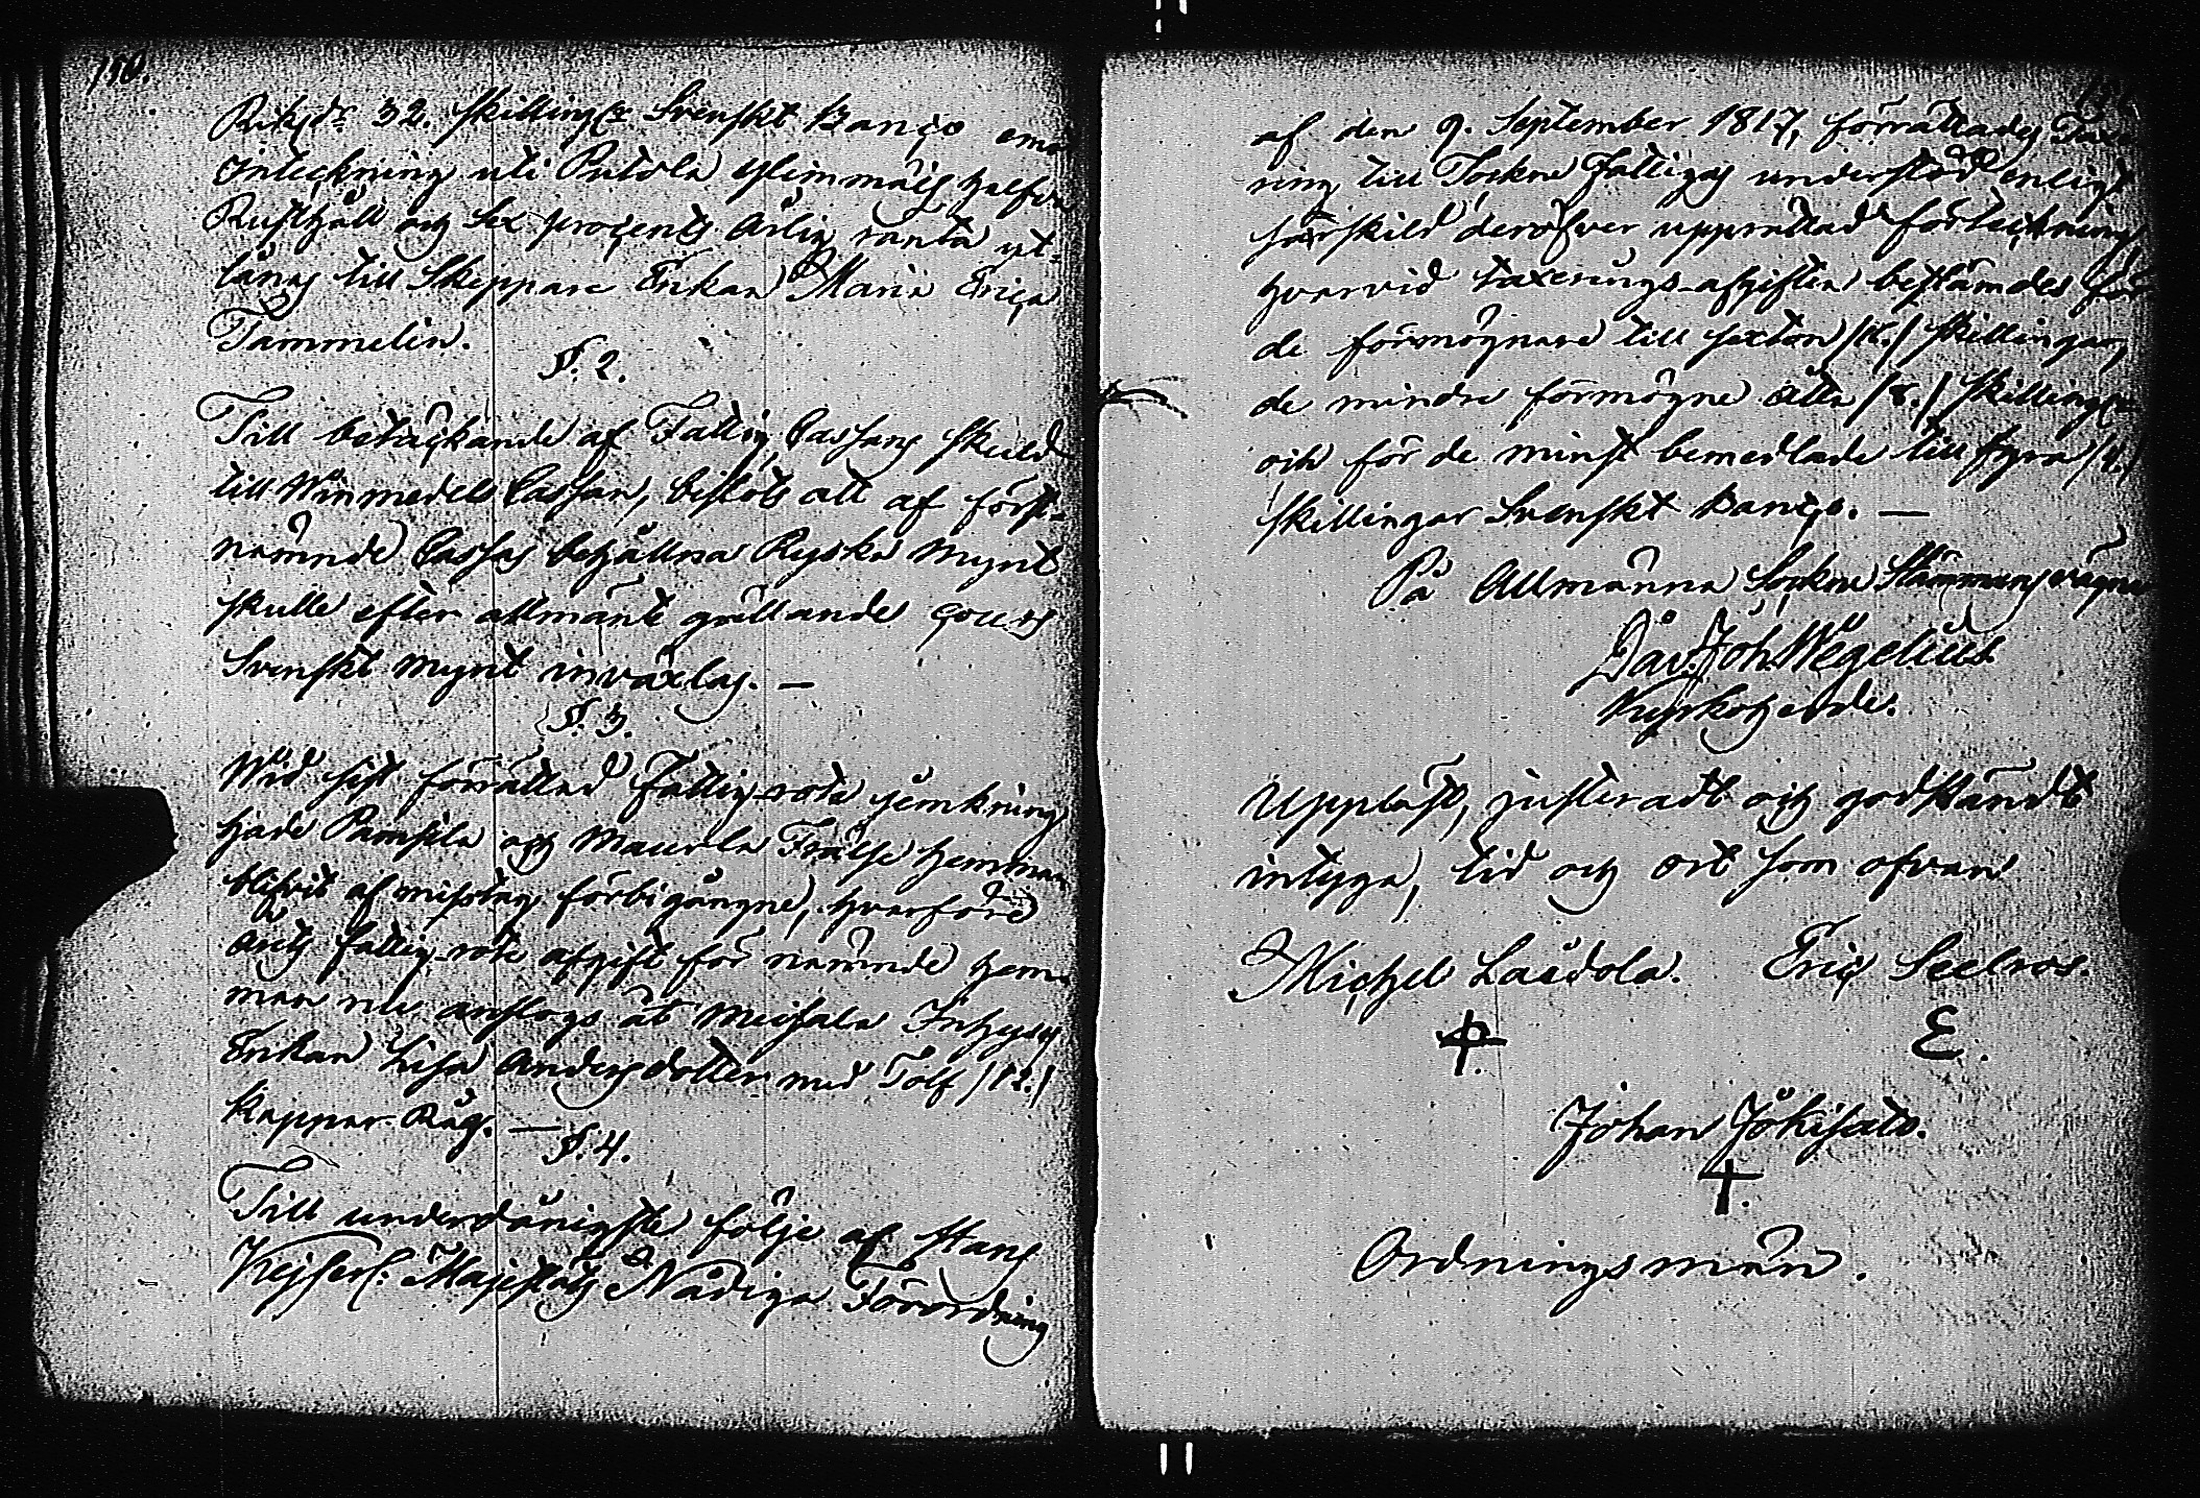 190.
Riksdr 32. Skillingar Svenskt Banco emot
Inteckning uti Putola Glimmäis halfva
Rusthåll och sex procents Årlig ränta ut-
lånas till Skeppare Enkan Maria Erica
Tammelin.
§. 2.
Till betäckande af Fattig Cassans skuld
till Winmedels Cassan, beslöts att af först-
nämnde Cassas behållna Ryska Mynt
skulle efter allmänt gällande cours
Svenskt Mynt inväxlas. —
§. 3.
Wid sist förrättad Fattig-rote jemkning
hade Pamsila och Maurla Frälse hemman
blifvit af misstag förbigångne, hvarföre
års fattig-rote afgift för nämnde hem-
man nu anslogs åt Meisala Inhyses
Enkan Lisa Andersdotter med Tolf /12./
Kappar Råg. —
§. 4.
Till underdånigste följe af Hans
Kejserl: Majestäts Nådiga Förordning
af den 9. September 1817, förrättades Taxe-
ring till Sockne Fattigas understöd enligt
särskild deröfver upprättad förteckning,
hvarvid taxerings-afgiften bestämdes för
de förmögnare till sexton /16./ skillingar,
de mindre förmögne åtta /8./ skillingar
och för de minst bemedlade till fyra /4./
skillingar Svenskt Banco. —
På Allmänna Sockne Stämmans vägnar
Dav. Joh. Wegelius
Kyrkoherde.
Uppläst, justeradt och godkändt
intyga, tid och ort som ofvan
Michel Laidola. Eric Seelros.
E.
Johan Jokisalo.
Ordningsmän.